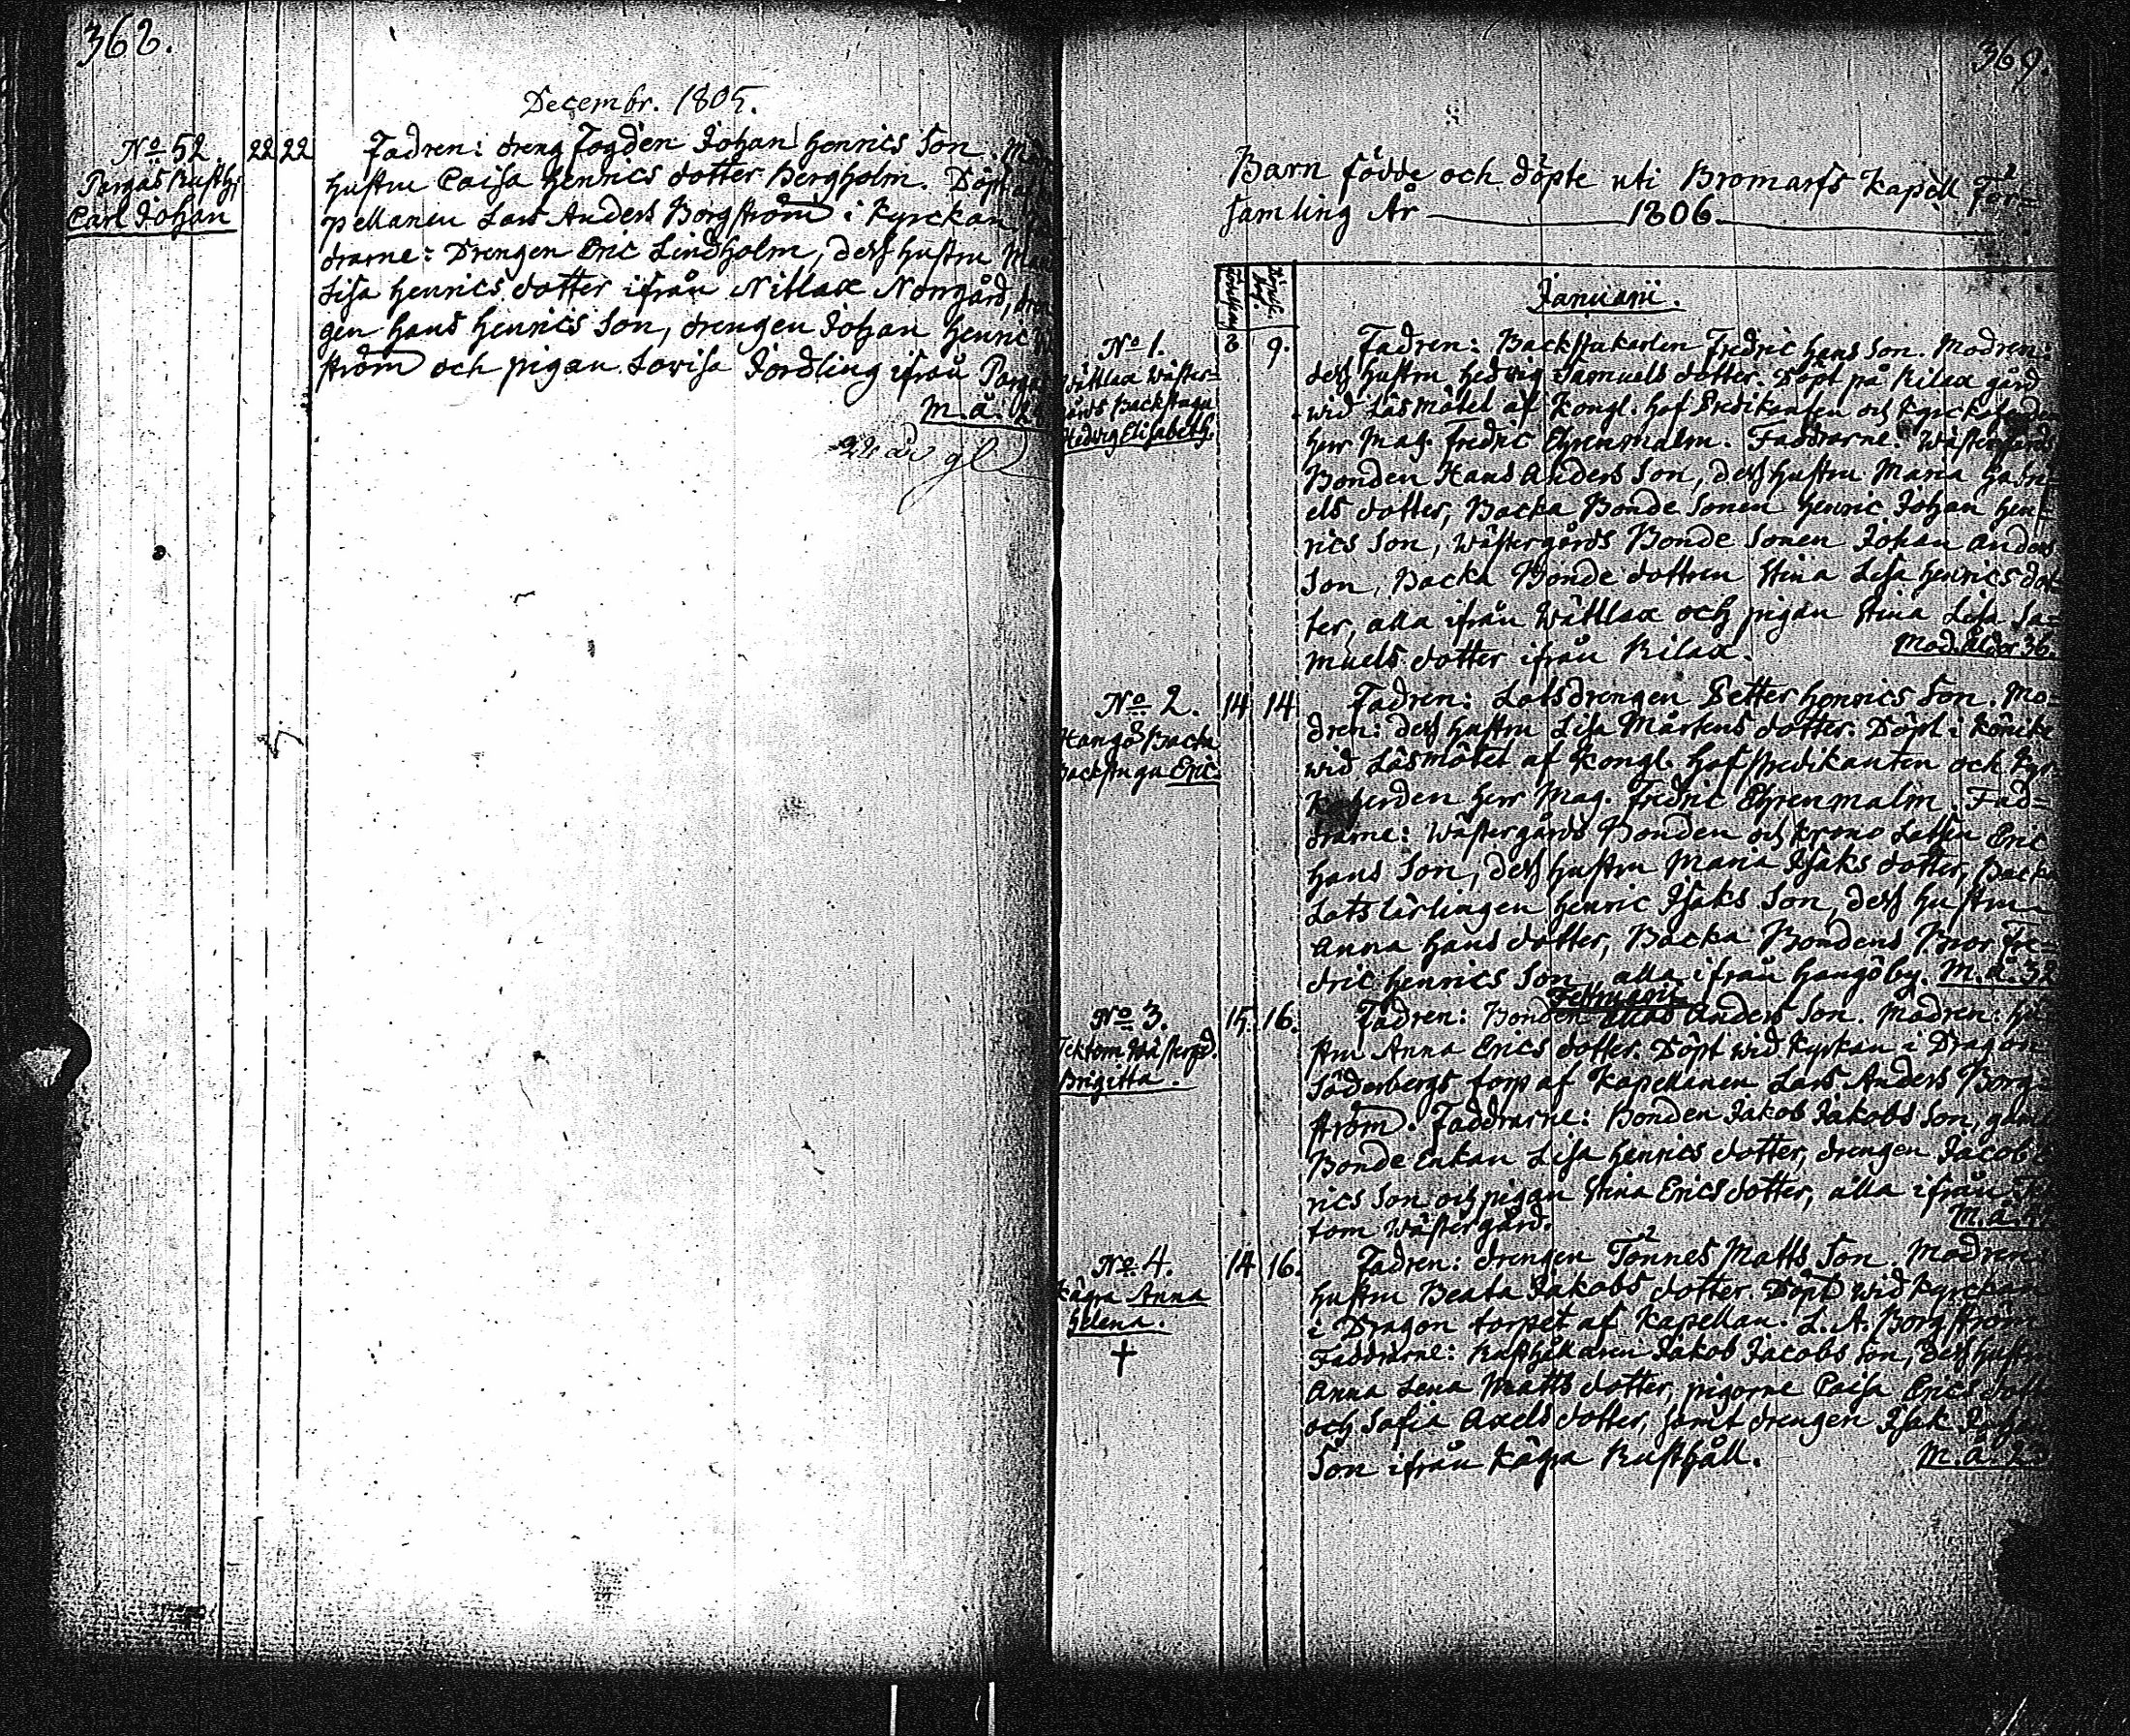 368.
Decembr. 1805.
No 52.
Pargas Rusth:
Carl Johan
22 22
Fadren: dreng Fogden Johan Henrics Son.
hustru Caisa Henrics dotter Bergholm. Döpt af
pellanen Lars Anders Borgström i Kyrckan.
drarne: Drengen Eric Lindholm, dess hustru
Lisa Henrics dotter ifrån Nitlax Norrgård,
gen Hans Henrics Son, drengen Johan Henric
ström och pigan Lovisa Jordling ifrån
M. å.
369.
Barn födde och döpte uti Bromarfs Kapell För=
samling År 1806.
Januarii.
No 1.
Wättlax Wäster=
gårds Backstugu
Hedvig Elisabeth.
8 9.
Fadren: Backstukarlen Fredric Hans Son. Modren:
dess hustru Hedvig Samuels dotter. Döpt på Rilax gård
wid Läsmötet af Kongl. Hof Predikanten och Kyrckoherden
Herr Mag. Fredric Ehrenmalm. Faddrarne: Wästergårds
Bonden Hans Anders Son, dess hustru Maria Gabri=
els dotter, Backa Bonde Sonen Henric Johan Hen=
rics Son, Wästergårds Bonde Sonen Johan Anders
Son, Backa Bonde dottren Stina Lisa Henrics dot=
ter, alla ifrån Wättlax och pigan Stina Lisa Sa=
muels dotter ifrån Rilax.
Mod. ålder 36.
No 2.
Hangö Backa
Backstugu Eric.
14 14
Fadren: Lotsdrengen Petter Henrics Son. Mo=
dren: dess hustru Lisa Mårtens dotter. Döpt i
wid Läsmötet af Kongl. Hofpredikanten och Kyr=
koherden Herr Mag. Fredric Ehrenmalm. Fad=
drarne: Wästergårds Bonden och Krono Lotsen Eric
Hans Son, dess hustru Maria Isaks dotter, Backa
Lotslärlingen Henric Isaks Son, dess hustru
Anna Hans dotter, Backa Bondens Bror Fre=
dric Henrics Son, alla ifrån Hangöby. M. å. 32
Februarii
No 3.
Tektom Wästergd.
Brigitta.
15. 16.
Fadren: Bonden Anders Son. Modren: hu
stru Anna Erics dotter. Döpt wid Kyrkan i Dragon
Söderbergs torp af Kapellanen Lars Anders Borg=
ström. Faddrarne: Bonden Jakob Jakobs Son, gamla
Bonde Enkan Lisa Henrics dotter, drengen Jacob
rics Son och pigan Stina Erics dotter, alla ifrån
tom Wästergård.
M. å.
No 4.
Kägra Anna
Helena.
†
14 16.
Fadren: drengen Tönnes Matts Son. Modren
hustru Beata Jakobs dotter. Döpt wid Kyrckan
i Dragon torpet af Kapellan. L. A. Borgström
Faddrarne: Rusthållaren Jakob Jacobs Son, dess hustru
Anna Lena Matts dotter, pigorne Caisa Erics dott
och Sofia Axels dotter, samt drengen Isak
Son ifrån Kägra Rusthåll.
M. å.